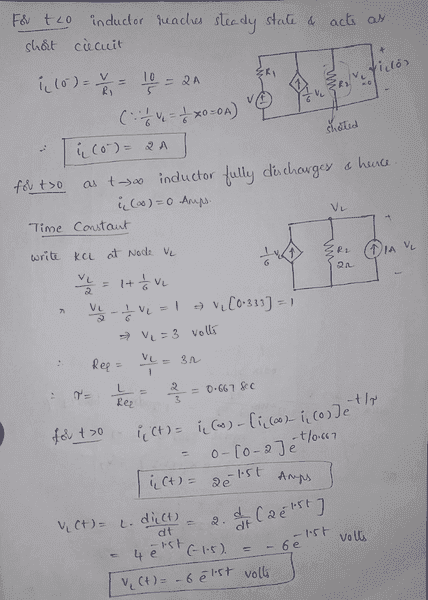 For t<0 inductor reaches steady state & acts as
short circuit
iL(0⁻) = V/R1 = 10/5 = 2A
(∵ 1/6 VL = 1/6 × 0 = 0A)
∴ iL(0⁻) = 2A
R1
V
1/6 VL
R2
VL = 0
iL(0⁻)
+
-
shorted
for t>0 as t→∞ inductor fully discharges & hence
iL(∞) = 0 Amps.
Time Constant
write KCL at Node VL
VL/2 = 1 + 1/6 VL
VL/2 - 1/6 VL = 1 ⇒ VL[0.333] = 1
⇒ VL = 3 volts
VL
1/6 VL
R2
2Ω
1A
+
VL
-
∴ Req = VL/1 = 3Ω
∴ τ = L/Req = 2/3 = 0.667 sec
for t>0 iL(t) = iL(∞) - [iL(∞) - iL(0)]e^-t/τ
= 0 - [0-2]e^-t/0.667
iL(t) = 2e^-1.5t Amps
VL(t) = L. diL(t)/dt = 2. d/dt (2e^-1.5t]
= 4e^-1.5t (-1.5). = -6e^-1.5t volts
VL(t) = -6e^-1.5t volts